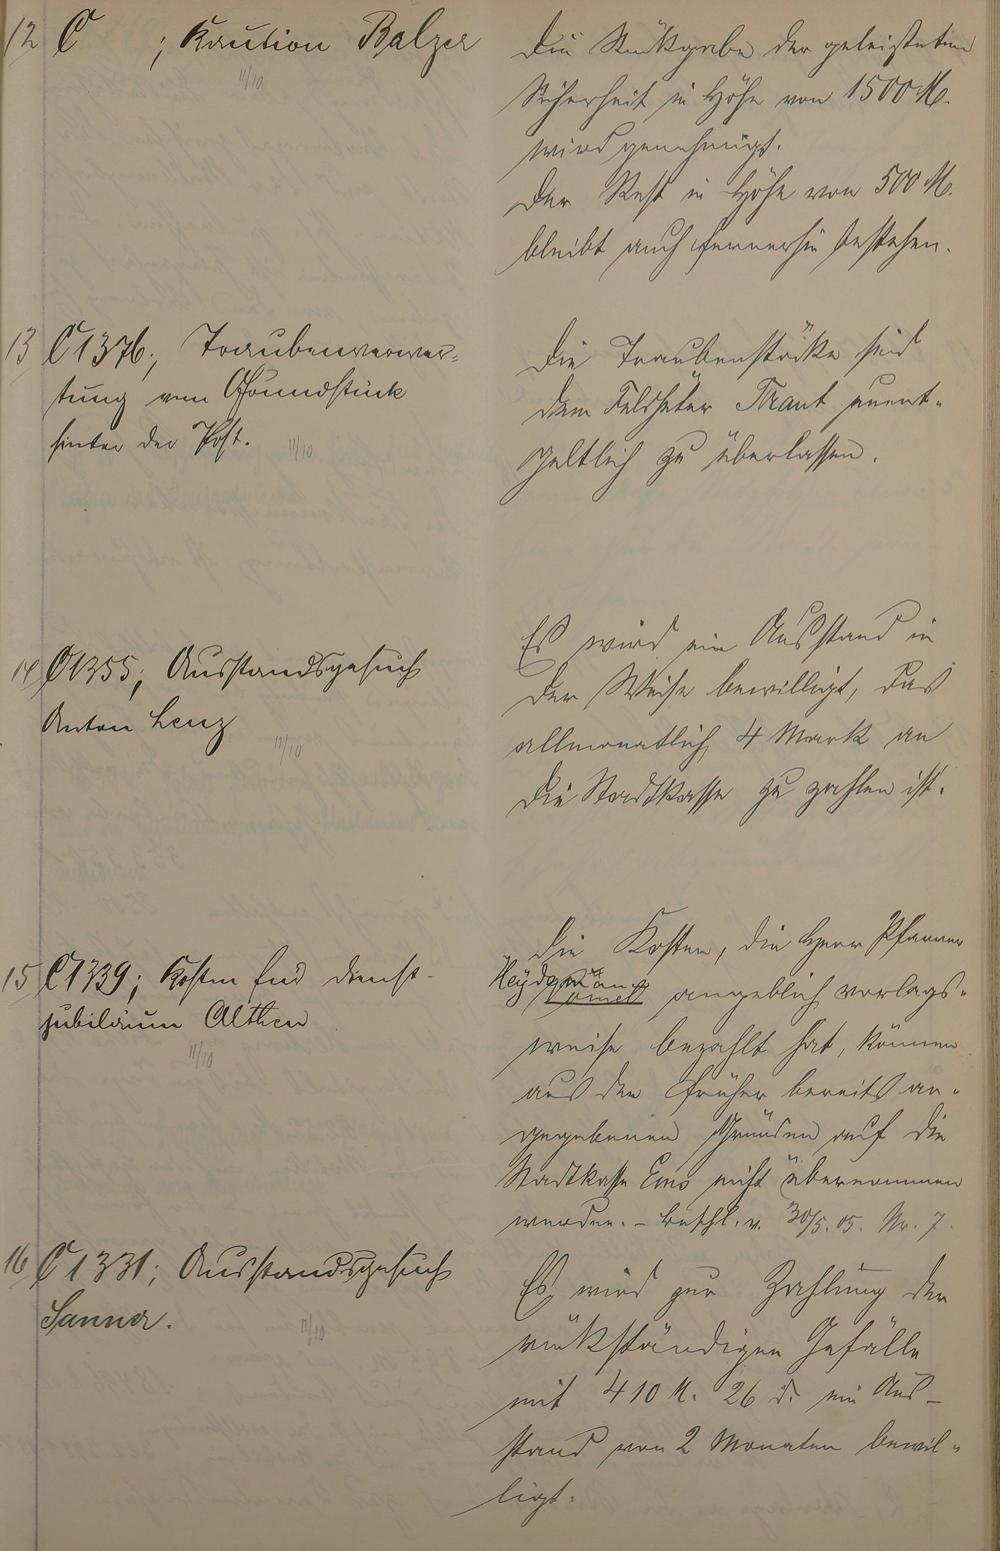 12 C ; Kaution Balzer
11/10
Die Rückgabe der geleisteten
Sicherheit in Höhe von 1500 M.
wird genehmigt.
Der Rest in Höhe von 500 M.
bleibt auch fernerhin bestehen.
13 C 1376; Traubenverwer-
tung vom Grundstück
hinter der Post.
11/10
Die Traubenstöcke sind
dem Feldhüter Thraut unent-
geltlich zu überlassen.
14 C 1355; Ausstandsgesuch
Anton Lenz
11/10
Es wird ein Ausstand in
der Weise bewilligt, das
allmonatlich 4 Mark an
die Stadtkasse zu zahlen ist.
15 C 1339; Kosten für Dienst-
jubiläum Althen
11/10
Die Kosten, die Herr Pfarrer
Heydemann angeblich vorlags-
weise bezahlt hat, können
aus den früher bereits an-
gegebenen Gründen auf die
Stadtkasse Ems nicht übernommen
werden. - Beschl. v. 30/5. 05. Nr. 7.
16 C 1331; Ausstandsgesuch
Sanner.
11/10
Es wird zur Zahlung der
rückständigen Gefälle
mit 410 M. 26 d. ein Aus-
stand von 2 Monaten bewil-
ligt.